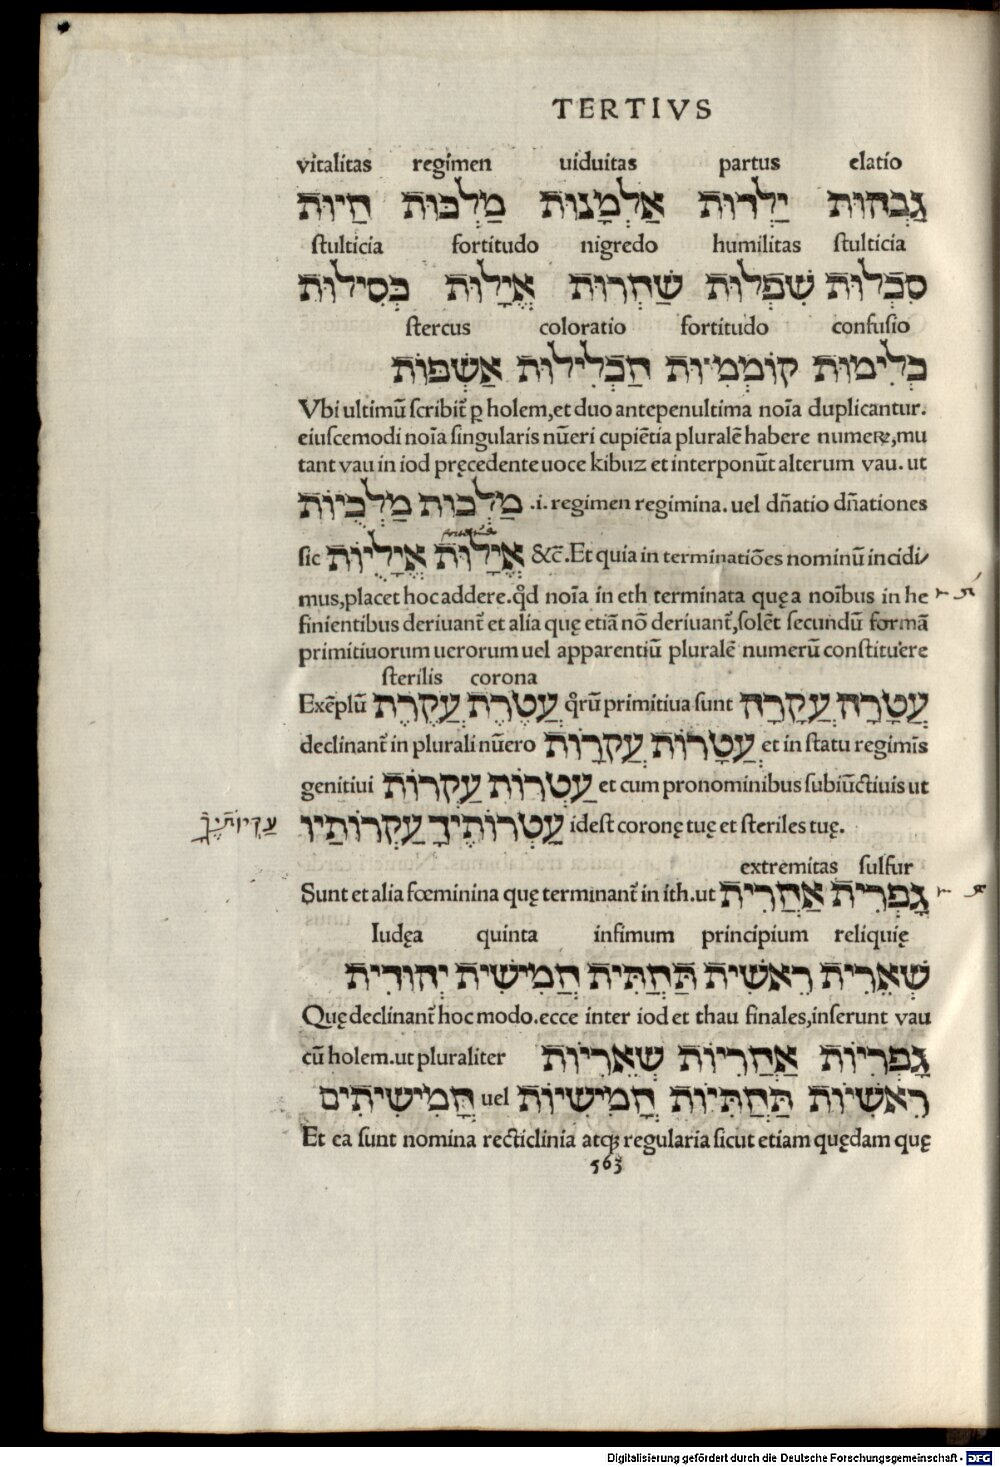 TERTIVS
vitalitas regimen uiduitas partus elatio
גַבְהוּת יַלְדוּת אַלְמָנוּת מַלְכוּת חַיוּת
stulticia fortitudo nigredo humilitas stulticia
סִכְלוּת שִׁפְלוּת שַׁחְרוּת אֱיָלוּת כְּסִילוּת
stercus coloratio fortitudo confusio
כְלִימוּת קוֹמְמִיוּת חַכְלִילוּת אַשְׁפּוֹת
Vbi ultimũ scribit᷑ ꝑ holem,et duo antepenultima noĩa duplicantur.
eiuscemodi noĩa singularis nũeri cupiẽtia pluralẽ habere numeꝝ,mu
tant vau in iod pręcedente uoce kibuz et interponũt alterum vau. ut
מַלְכוּת מַלְכֻיוֹת .i. regimen regimina. uel dñatio dñationes
sic אֱיָלוּת אֱיָלֻיוֹת &c̃. Et quia in terminatiões nominũ incidi/
mus,placet hoc addere. qd̃ noĩa in eth terminata quę a noĩbus in he
finientibus deriuant᷑ et alia quę etiã nõ deriuant᷑,solẽt secundũ formã
primitiuorum uerorum uel apparentiũ pluralẽ numerũ constituere
sterilis corona
Exẽplũ עֲטֶרֶת עֲקֶרֶת qrũ primitiua sunt עֲטָרָה עֲקָרָה
declinant᷑ in plurali nũero עֲטָרוֹת עֲקָרוֹת et in statu regimĩs
genitiui עַטְרוֹת עַקְרוֹת et cum pronominibus subiũctiuis ut
עַטְרוֹתֶיךָ עַקְרוֹתַיו idest coronę tuę et steriles tuę.
extremitas sulfur
Sunt et alia fœminina quę terminant᷑ in ith. ut גָפְרִית אַחֲרִית
Iudęa quinta infimum principium reliquię
שְׁאֵרִית רֵאשִׁית תַּחְתִּית חֲמִישִׁית יְהוּדִית
Quę declinant᷑ hoc modo. ecce inter iod et thau finales,inserunt vau
cũ holem. ut pluraliter גָפְרִיוֹת אַחֲרִיוֹת שְׁאֵרִיוֹת
רֵאשִׁיוֹת תַּחְתִּיוֹת חֲמִישִׁיוֹת uel חֲמִישִׁיתִים
Et ea sunt nomina recticlinia atqꝫ regularia sicut etiam quędam quę
563
Digitalisierung gefördert durch die Deutsche Forschungsgemeinschaft - DFG